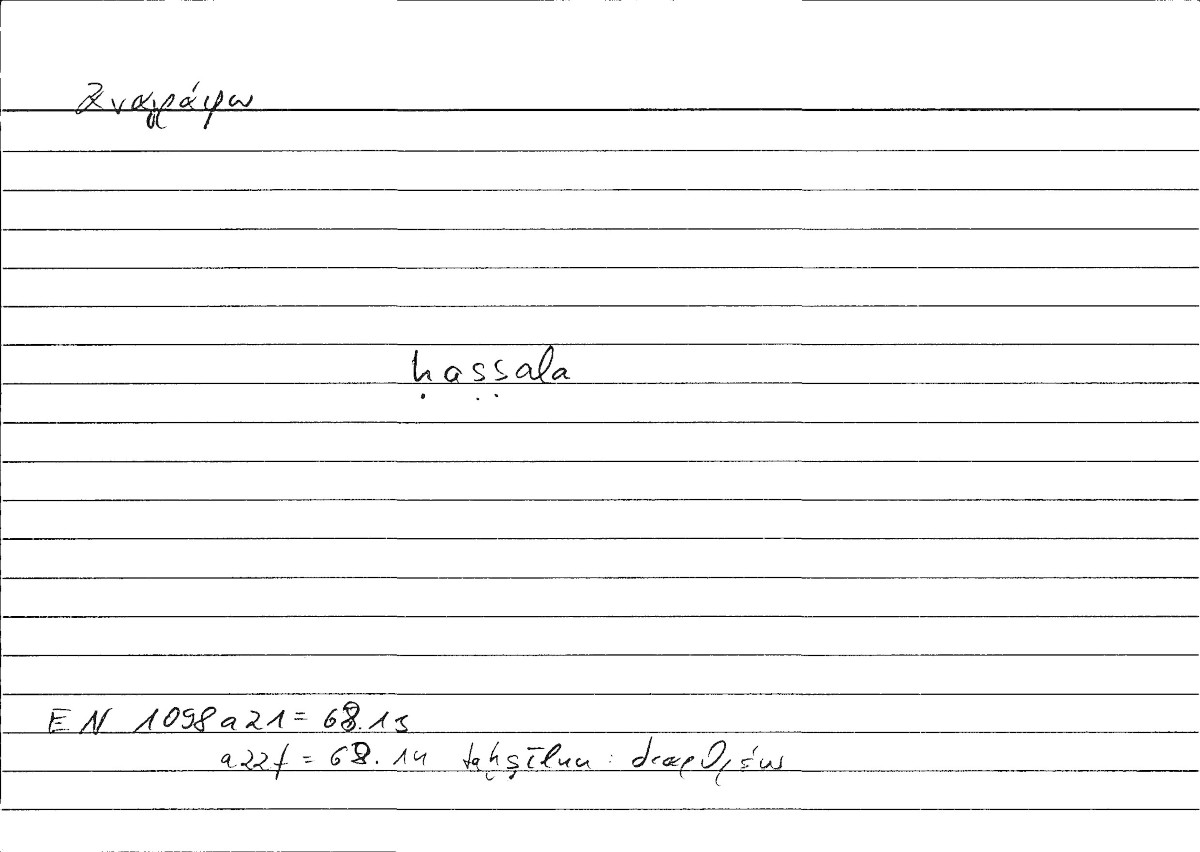 ἀναγράφω
ḥaṣṣala
EN 1098a21 = 68.13
a22f = 68.14 taḥṣīlun : διαρθρέω